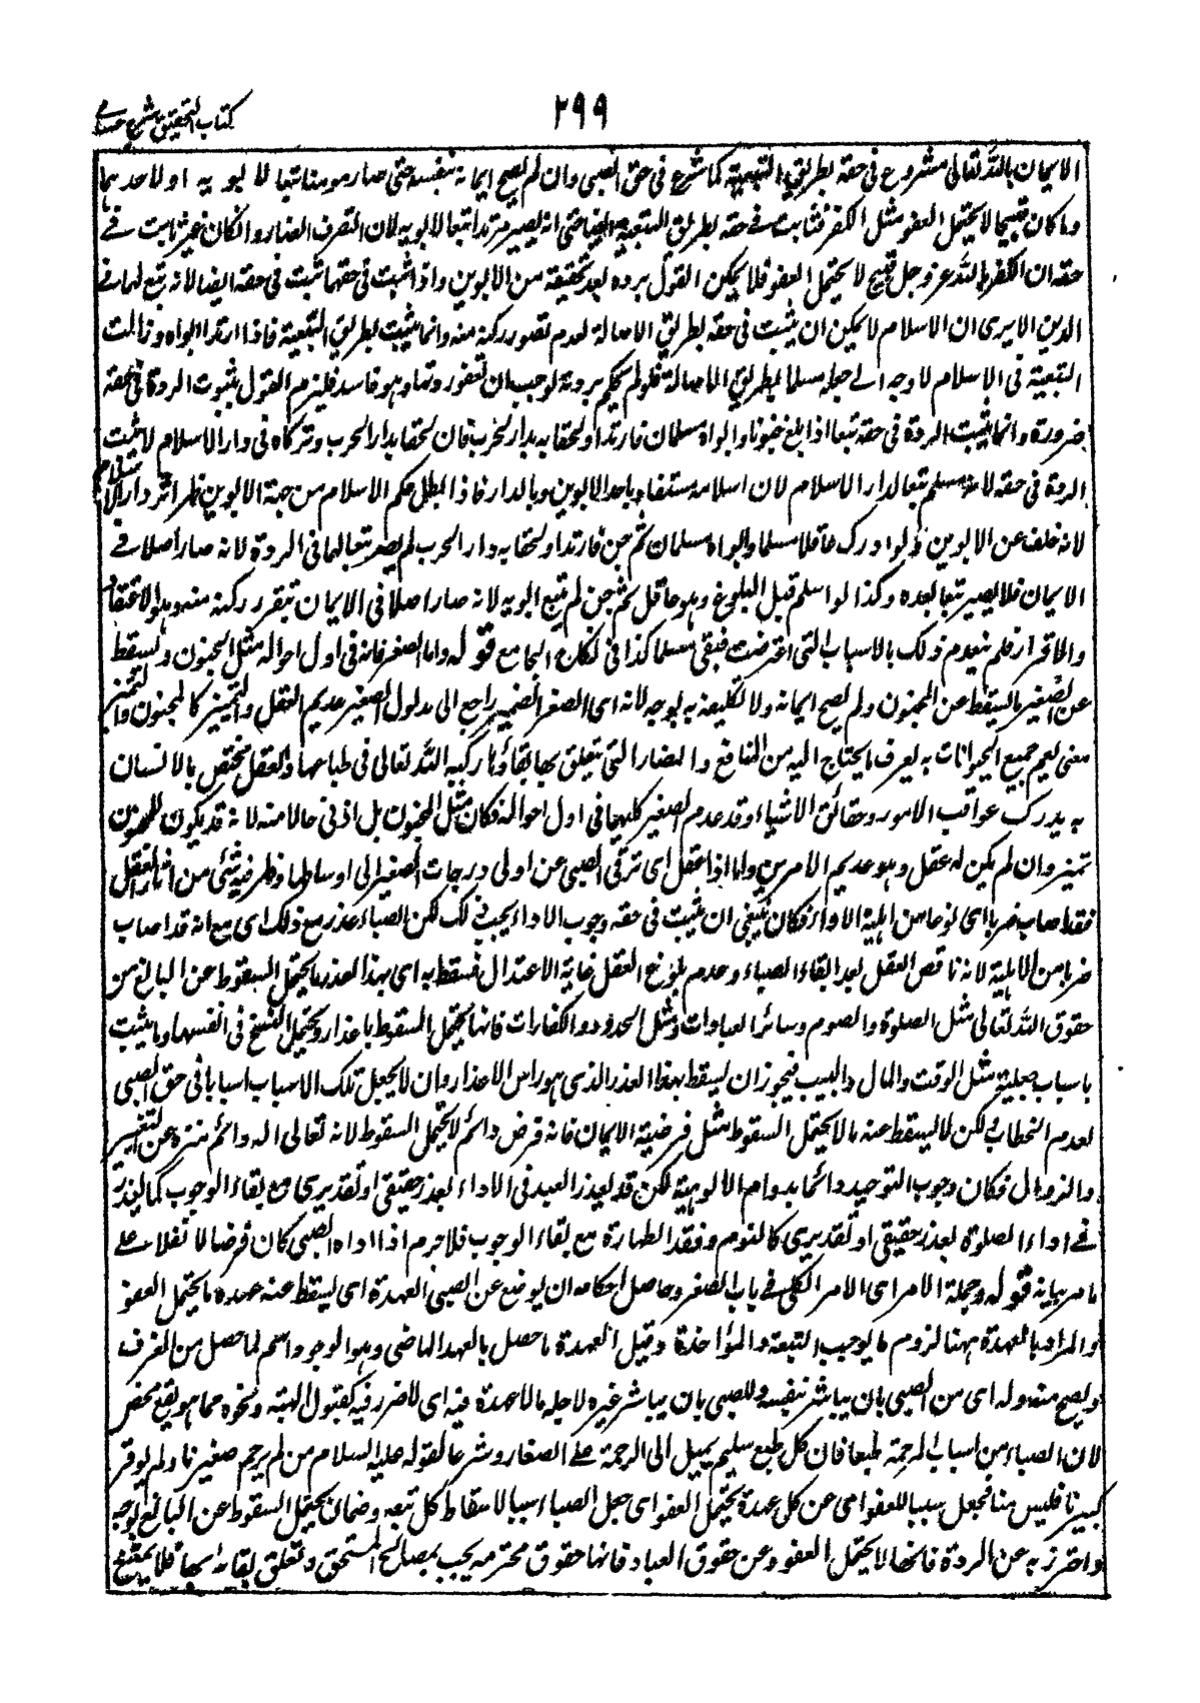 ٢٩٩
كتاب التحقيق شرح حسامى
الايمان بالله تعالى مشروع فى حقه بطريق التبعية كما شرع فى حق الصبى وان لم يصح ايمانه بنفسه حتى صار مومنا تبعا لابويه او لاحدهما
وما كان قبيحا لا يحتمل العفو مثل الكفر فثابت فى حقه بطريق التبعية ايضا حتى انه يصير مرتدا تبعا لابويه لان التصرف الضار وان كان غير ثابت فى
حقه ان الكفر بالله عز وجل قبيح لا يحتمل العفو فلا يمكن القول برده بعد تحقيقه من الابوين واذا ثبت فى حقهما ثبت فى حقه ايضا لانه تبع لهما فى
الدين الا يرى ان الاسلام لا يمكن ان يثبت فى حقه بطريق الاصالة لعدم تصور ركنه منه وانما يثبت بطريق التبعية فاذا ارتد ابواه وزالت
التبعية فى الاسلام لا وجه الى جعله مسلما بطريق الاصالة فلو لم يحكم بردته لوجب ان تعفو ردتهما وهو فاسد فلزم القول بثبوت الردة فى حقه
ضرورة وانما يثبت الردة فى حقه تبعا اذا بلغ مجنونا وابواه مسلمان فارتدا ولحقا به بدار الحرب فان لحقا بدار الحرب وتركاه فى دار الاسلام لا يثبت
الردة فى حقه لانه مسلم تبعا لدار الاسلام لان اسلامه مستفاد باحد الابوين وبالدار فاذا بطل حكم الاسلام من جهة الابوين ظهر اثر دار الاسلام
لانه خلف عن الابوين ولو ادرك عاقلا مسلما وابواه مسلمان ثم جن فارتدا ولحقا به دار الحرب لم يصر تبعا لهما فى الردة لانه صار اصلا فى
الايمان فلا يصير تبعا بعده وكذا لو اسلم قبل البلوغ وهو عاقل ثم جن لم يتبع ابويه لانه صار اصلا فى الايمان بتقرر ركنه منه وهو الاعتقاد
والاقرار فلم ينعدم ذلك بالاسباب التى اعترضت فبقى مسلما كذا فى نكاح الجامع قوله واما الصغر فانه فى اول احواله مثل الجنون فيسقط
عن الصغير ما يسقط عن المجنون ولم يصح ايمانه ولا تكليفه به بوجه لانه اى الصغر الضمير راجع الى مدلول الصغير عديم العقل والتمييز كالمجنون والتميز
معنى يعم جميع الحيوانات به يعرف ما يحتاج اليه من المنافع والمضار التى يتعلق بها بقاؤه ركبه الله تعالى فى طباعها والعقل مختص بالانسان
به يدرك عواقب الامور وحقائق الاشياء وقد عدم الصغير كليهما فى اول احواله فكان مثل المجنون بل ادنى حالا منه لانه قد يكون للمجنون
تميز وان لم يكن له عقل وهو عديم الامرين واما اذا عقل اى ترقى الصبى عن اولى درجات الصغر الى اوساطها وظهر فيه شئى من اثار العقل
فقد اصاب ضربا اى نوعا من اهلية الاداء فكان ينبغى ان يثبت فى حقه وجوب الاداء بحسب ذلك لكن الصباء عذر مع ذلك اى مع انه قد اصاب
ضربا من الاهلية لانه ناقص العقل بعد لبقاء الصباء وعدم بلوغ العقل غاية الاعتدال فسقط به اى بهذا العذر ما يحتمل السقوط عن البالغ من
حقوق الله تعالى مثل الصلوة والصوم وسائر العبادات ومثل الحدود والكفارات فانها يحتمل السقوط باعذار ويحتمل النسخ فى انفسها وما يثبت
باسباب جعلية مثل الوقت والمال والبيت فيجوز ان يسقط بهذا العذر الذى هو راس الاعذار وان لا يجعل تلك الاسباب اسبابا فى حق الصبى
لعدم الخطاب لكن لا يسقط عنه ما لا يحتمل السقوط مثل فرضية الايمان فانه فرض دائم لا يحتمل السقوط لانه تعالى اله دائم منزه عن التغيير
والزوال فكان وجوب التوحيد دائما بدوام الالوهية لكن قد يعذر العبد فى الاداء بعذر حقيقى او تقديرى مع بقاء الوجوب كما يعذر
فى اداء الصلوة بعذر حقيقى او تقديرى كالنوم وفقد الطهارة مع بقاء الوجوب فلا جرم اذا اداه الصبى كان فرضا لا نفلا على
ما مر بيانه قوله وجملة الامر اى الامر الكلى فى باب الصغر وحاصل احكامه ان يوضع عن الصبى العهدة اى يسقط عنه عهدة ما يحتمل العفو
والمراد بالعهدة ههنا لزوم ما يوجب التبعة والمؤاخذة وقيل العهدة ما حصل بالعهد الماضى وهو الوجوب واسم لما حصل من الغرف
ويصح منه وله اى من الصبى بان يباشر بنفسه وللصبى بان يباشر غيره لاجله ما لا عهدة فيه اى لا ضرر فيه كقبول الهبة ونحوه مما هو نفع محض
لان الصباء من اسباب المرحمة طبعا فان كل طبع سليم يميل الى الرحمة على الصغار وشرعا لقوله عليه السلام من لم يرحم صغيرنا ولم يوقر
كبيرنا فليس منا فجعل سببا للعفو اى عن كل عهدة يحتمل العفو اى جعل الصباء سببا لاسقاط كل تبعة وضمان يحتمل السقوط عن البالغ بوجه
واحترز به عن الردة فانها لا يحتمل العفو وعن حقوق العباد فانها حقوق محترمة يجب بمصالح المستحق وتعلق بقائه بها فلا يمتنع